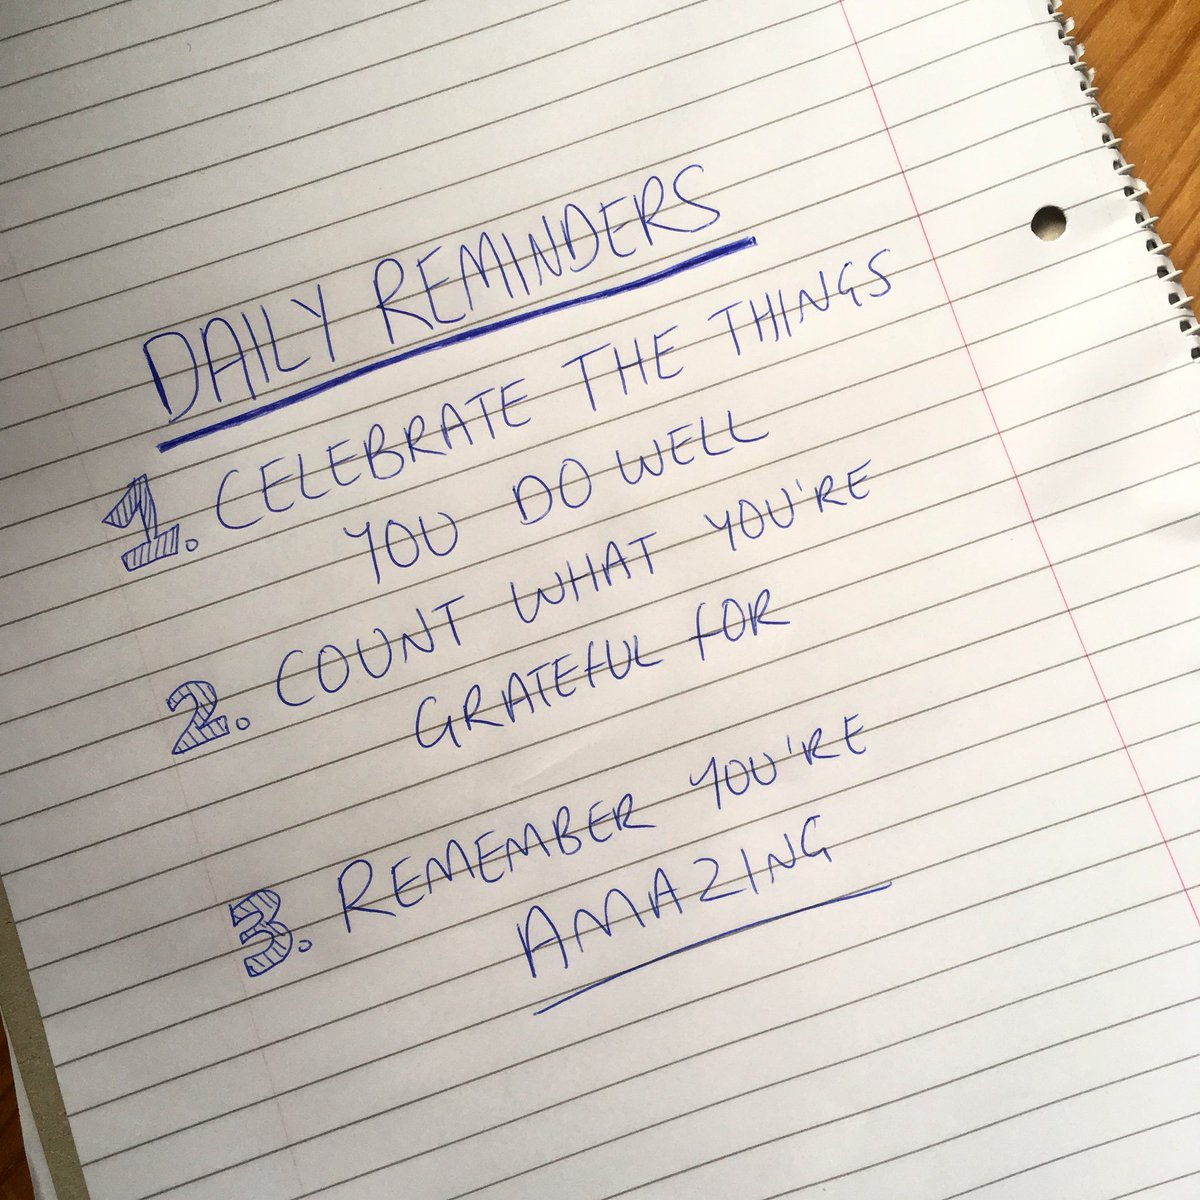 DAILY REMINDERS
1. CELEBRATE THE THINGS
YOU DO WELL
2. COUNT WHAT YOU'RE
GRATEFUL FOR
3. REMEMBER YOU'RE
AMAZING